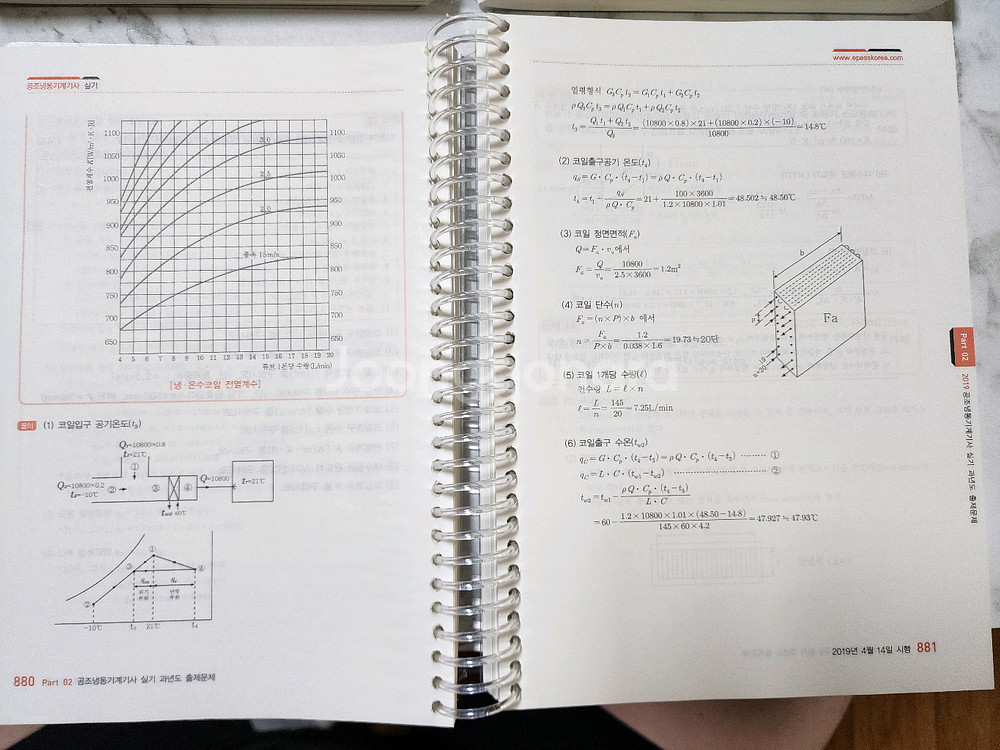 공조냉동기계기사 실기
전열계수 K[W/m²·K·R]
1100 1100
1050 1050
1000 1000
950 950
900 900
850 850
800 800
750 750
700 700
650 650
3.0
2.5
2.0
풍속 1.5m/s
4 5 6 7 8 9 10 11 12 13 14 15 16 17 18 19 20
튜브 1본당 수량(L/min)
[냉·온수코일 전열계수]
풀이 (1) 코일입구 공기온도(t₃)
Q₁=10800×0.8
t₁=21℃
①
Q₂=10800×0.2
t₂=-10℃
②
③
④
Q=10800
tᵣ=21℃
t_w2 60℃
①
②
③
④
외기
부하
난방
부하
-10℃ t₃ 21℃ t₄
880 Part 02 공조냉동기계기사 실기 과년도 출제문제
www.epasskorea.com
열평형식 G₃Cₚt₃=G₁Cₚt₁+G₂Cₚt₂
ρQ₃Cₚt₃=ρQ₁Cₚt₁+ρQ₂Cₚt₂
t₃=(Q₁t₁+Q₂t₂)/Q₃=((10800×0.8)×21+(10800×0.2)×(-10))/10800=14.8℃
(2) 코일출구공기 온도(t₄)
qₛ=G·Cₚ·(t₄-t₁)=ρQ·Cₚ·(t₄-t₁)
t₄=t₁+qₛ/(ρQ·Cₚ)=21+(100×3600)/(1.2×10800×1.01)=48.502≒48.50℃
(3) 코일 정면면적(Fₐ)
Q=Fₐ·vₐ에서
Fₐ=Q/vₐ=10800/(2.5×3600)=1.2m²
(4) 코일 단수(n)
Fₐ=(n×P)×b 에서
n=Fₐ/(P×b)=1.2/(0.038×1.6)=19.73≒20단
b
Fa
P
(5) 코일 1개당 수량(ℓ)
전수량 L=ℓ×n
ℓ=L/n=145/20=7.25L/min
(6) 코일출구 수온(t_w2)
q_C=G·Cₚ·(t₄-t₃)=ρQ·Cₚ·(t₄-t₃) ········· ①
q_C=L·C·(t_w1-t_w2) ········· ②
t_w2=t_w1-(ρQ·Cₚ·(t₄-t₃))/(L·C)
=60-(1.2×10800×1.01×(48.50-14.8))/(145×60×4.2)=47.927≒47.93℃
Part 02
2019 공조냉동기계기사 실기 과년도 출제문제
2019년 4월 14일 시행 881